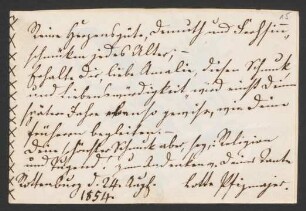 Reine Herzensgüte, Demuth und Frohsinn,
schmücken jedes Alter,
Erhalte Dir, liebe Amalie, diesen Schmuk
und Liebenswürdigkeit, wird nicht Deine
spätern Jahre ebenso gewiß, wie Deine
frühern begleiten.
Dein schönster Schmuk aber, sey: Religion
und Tugend! zum Andenken, Deine Tante
Rottenburg d. 24. Augst. Lotte Pfizmajer.
1854.